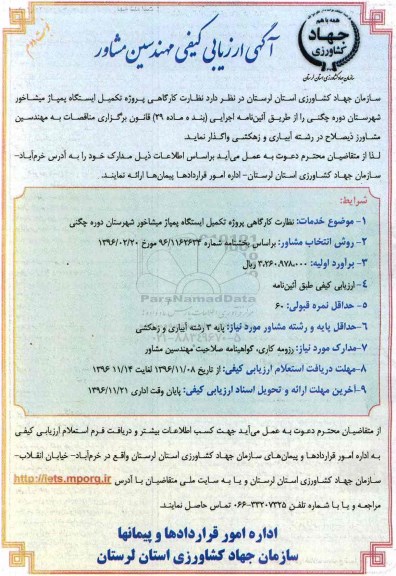 همه با هم
جهاد
کشاورزی
سازمان جهاد کشاورزی استان لرستان
نوبت دوم
آگهی ارزیابی کیفی مهندسین مشاور
سازمان جهاد کشاورزی استان لرستان در نظر دارد نظارت کارگاهی پروژه تکمیل ایستگاه پمپاژ میشاخور
شهرستان دوره چگنی را از طریق آئین‌نامه اجرایی (بند ه ماده ۲۹) قانون برگزاری مناقصات به مهندسین
مشاورز ذیصلاح در رشته آبیاری و زهکشی واگذار نماید.
لذا از متقاضیان محترم دعوت به عمل می‌آید براساس اطلاعات ذیل مدارک خود را به آدرس خرم‌آباد-
سازمان جهاد کشاورزی استان لرستان- اداره امور قراردادها پیمان‌ها ارائه نمایند.
شرایط:
۱- موضوع خدمات: نظارت کارگاهی پروژه تکمیل ایستگاه پمپاژ میشاخور شهرستان دوره چگنی
۲- روش انتخاب مشاور: براساس بخشنامه شماره ۹۶/۱۱۶۲۶۳۴ مورخ ۱۳۹۶/۰۲/۲۰
۳- برآورد اولیه: ۳،۲۶۰،۹۷۸،۰۰۰ ریال
۴-ارزیابی کیفی طبق آئین‌نامه
۵- حداقل نمره قبولی: ۶۰
۶-حداقل پایه و رشته مشاور مورد نیاز: پایه ۳ رشته آبیاری و زهکشی
۷-مدارک مورد نیاز: رزومه کاری، گواهینامه صلاحیت مهندسین مشاور
۸-مهلت دریافت استعلام ارزیابی کیفی: از تاریخ ۱۳۹۶/۱۱/۰۸ لغایت ۱۱/۱۴ ۱۳۹۶
۹-آخرین مهلت ارائه و تحویل اسناد ارزیابی کیفی: پایان وقت اداری ۱۳۹۶/۱۱/۲۱
ParsNamadData
۰۲۱-۸۸۳۴۹۶۷۰-۵
از متقاضیان محترم دعوت به عمل می‌آید جهت کسب اطلاعات بیشتر و دریافت فرم استعلام ارزیابی کیفی
به اداره امور قراردادها و پیمان‌های سازمان جهاد کشاورزی استان لرستان واقع در خرم‌آباد- خیابان انقلاب-
سازمان جهاد کشاورزی استان لرستان و یا به سایت ملی متقاضیان با آدرس http://iets.mporg.ir
مراجعه و یا با شماره تلفن ۳۳۲۰۷۳۲۵-۰۶۶ تماس حاصل نمایند.
اداره امور قراردادها و پیمانها
سازمان جهاد کشاورزی استان لرستان